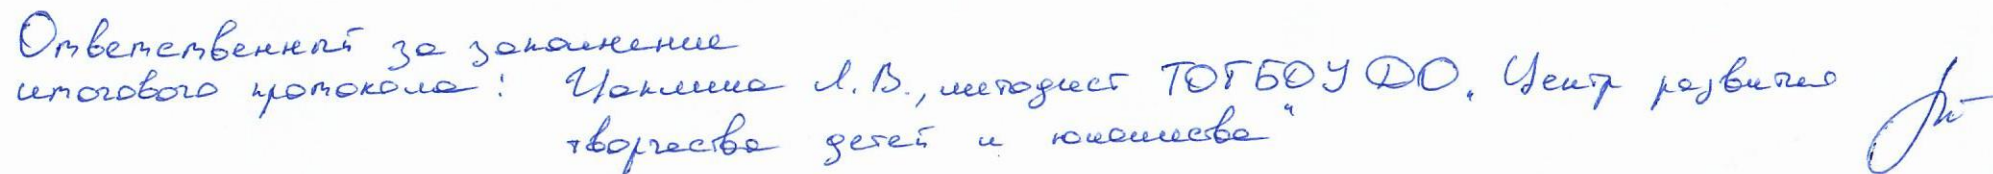 Ответственный за заполнение
итогового протокола: Л.В., методист ТОГБОУ ДО „Центр развития
творчества детей и юношества“